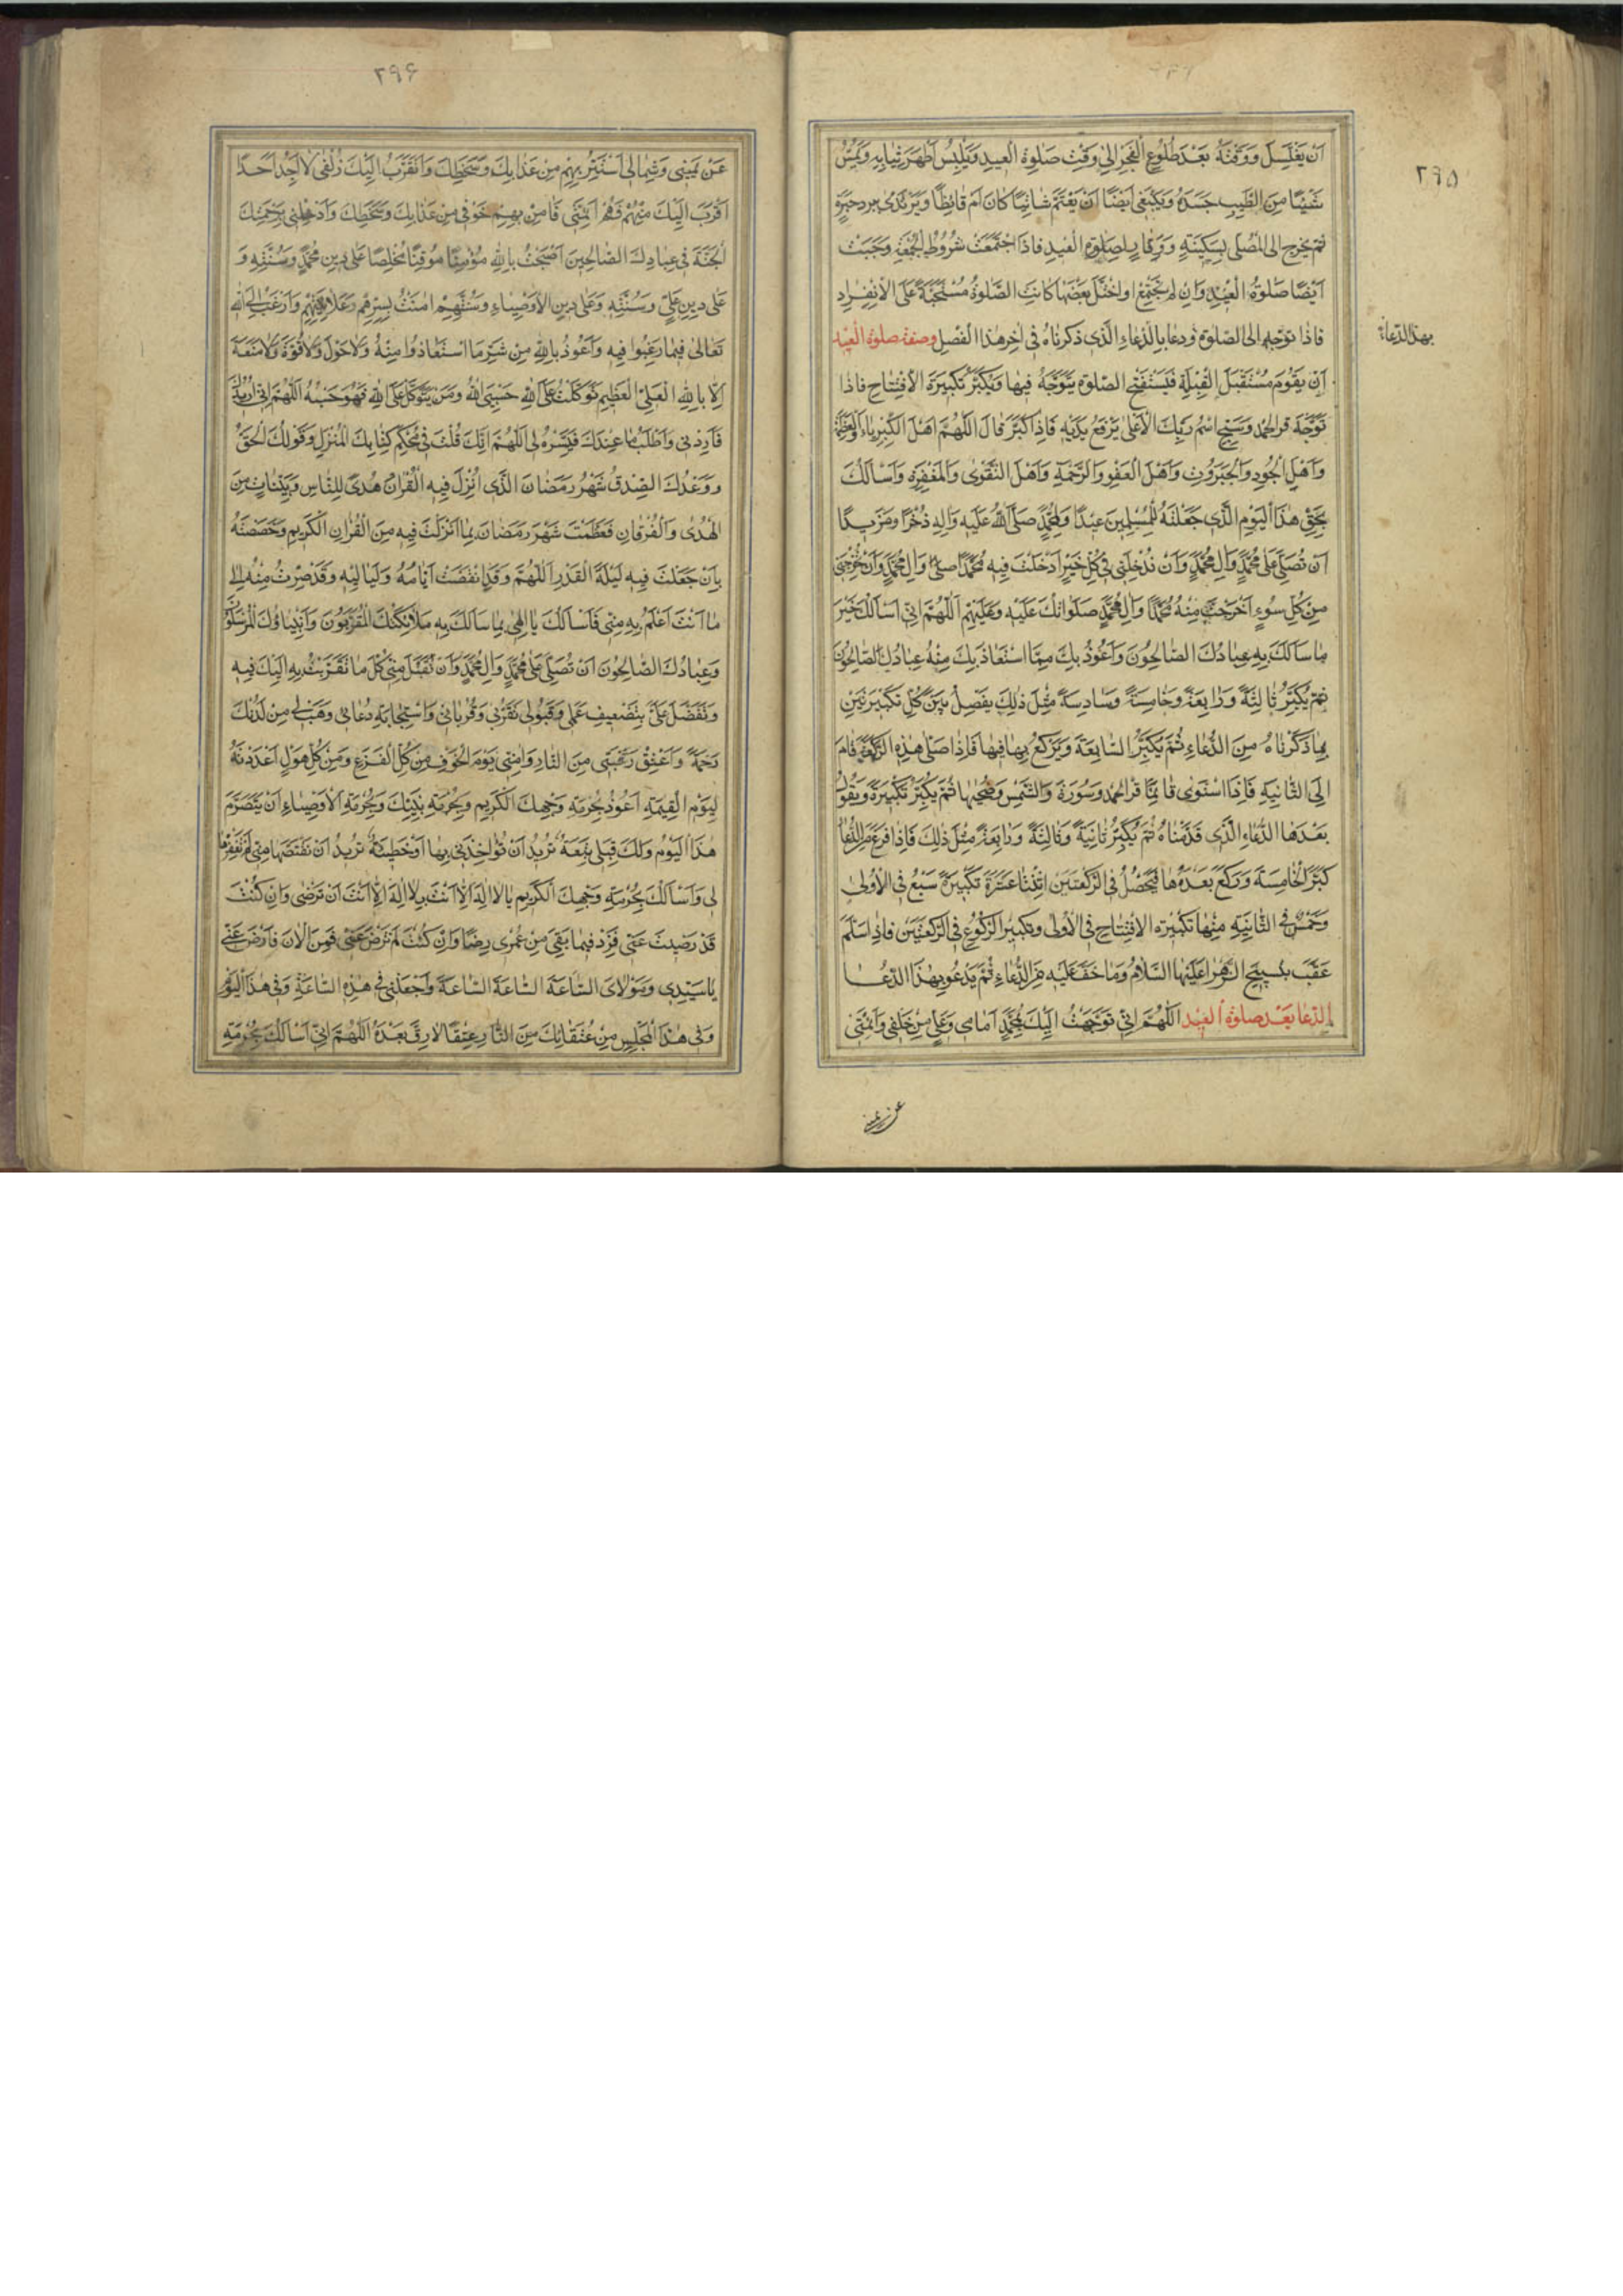 ٢٩٥
اَنْ يَغْتَسِلَ وَوَقْتُهُ بَعْدَ طُلُوعِ الْفَجْرِ اِلىٰ وَقْتِ صَلٰوةِ الْعيدِ وَيَلْبِسُ اَطْهَرَ ثِيابِهِ وَيَمَسُّ
شَيْئًا مِنَ الطّيبِ جَسَدَهُ وَيَنْبَغى اَيْضًا اَنْ يَعْتَمَّ شاتِيًا كانَ اَمْ قائِظًا وَيَرْتَدىَ بِبُرْدِ حِبَرَةٍ
ثُمَّ يَخْرُجُ اِلى الْمُصَلّى بِسَكينَةٍ وَوَقارٍ لِصَلٰوةِ الْعيدِ فَاِذَا اجْتَمَعَتْ شُرُوطُ الْجُمْعَةِ وَجَبَتْ
اَيْضًا صَلٰوةُ الْعيدِ وَاِنْ لَمْ يَجْتَمِعْ اَوِ اخْتَلَّ بَعْضُها كانَتِ الصَّلٰوةُ مُسْتَحَبَّةً عَلَى الْاِنْفِرادِ
فَاِذا تَوَجَّهَ اِلى الصَّلٰوةِ وَدَعا بِالدُّعاءِ الَّذى ذَكَرْناهُ فى اٰخِرِ هٰذَا الْفَصْلِ وَصِفَةُ صَلٰوةِ الْعيدِ
بهذا الدعاء
اَنْ يَقُومَ مُسْتَقْبَلَ الْقِبْلَةِ فَيَسْتَفْتِحَ الصَّلٰوةَ يَتَوَجَّهُ فيها وَيُكَبِّرُ تَكْبيرَةَ الْاِفْتِتاحِ فَاِذا
تَوَجَّهَ قَرَأَ الْحَمْدَ وَسَبِّحِ اسْمَ رَبِّكَ الْاَعْلىٰ يَرْفَعُ يَدَيْهِ فَاِذا كَبَّرَ قالَ اَللّٰهُمَّ اَهْلَ الْكِبْرِياءِ وَالْعَظَمَةِ
وَاَهْلَ الْجُودِ وَالْجَبَرُوتِ وَاَهْلَ الْعَفْوِ وَالرَّحْمَةِ وَاَهْلَ التَّقْوىٰ وَالْمَغْفِرَةِ وَاَسْأَلُكَ
بِحَقِّ هٰذَا الْيَوْمِ الَّذى جَعَلْتَهُ لِلْمُسْلِمينَ عيدًا وَلِمُحَمَّدٍ صَلَّى اللّٰهُ عَلَيْهِ وَاٰلِهِ ذُخْرًا وَمَزيدًا
اَنْ تُصَلِّىَ عَلىٰ مُحَمَّدٍ وَاٰلِ مُحَمَّدٍ وَاَنْ تُدْخِلَنى فى كُلِّ خَيْرٍ اَدْخَلْتَ فيهِ مُحَمَّدًا وَاٰلَ مُحَمَّدٍ وَاَنْ تُخْرِجَنى
مِنْ كُلِّ سُوءٍ اَخْرَجْتَ مِنْهُ مُحَمَّدًا وَاٰلَ مُحَمَّدٍ صَلَواتُكَ عَلَيْهِ وَعَلَيْهِمْ اَللّٰهُمَّ اِنّى اَسْأَلُكَ خَيْرَ
ما سَأَلَكَ بِهِ عِبادُكَ الصّالِحُونَ وَاَعُوذُ بِكَ مِمَّا اسْتَعاذَ بِكَ مِنْهُ عِبادُكَ الصّالِحُونَ
ثُمَّ يُكَبِّرُ ثالِثَةً وَرابِعَةً وَخامِسَةً وَسادِسَةً مِثْلَ ذٰلِكَ يَفْصِلُ بَيْنَ كُلِّ تَكْبيرَتَيْنِ
بِما ذَكَرْناهُ مِنَ الدُّعاءِ ثُمَّ يُكَبِّرُ السّابِعَةَ وَيَرْكَعُ بِها فيها فَاِذا صَلّى هٰذِهِ الرَّكْعَةَ قامَ
اِلَى الثّانِيَةِ فَاِذَا اسْتَوىٰ قائِمًا قَرَأَ الْحَمْدَ وَسُورَةَ وَالشَّمْسِ وَضُحٰيها ثُمَّ يُكَبِّرُ تَكْبيرَةً وَيَقُولُ
بَعْدَهَا الدُّعاءَ الَّذى قَدَّمْناهُ ثُمَّ يُكَبِّرُ ثانِيَةً وَثالِثَةً وَرابِعَةً مِثْلَ ذٰلِكَ فَاِذا فَرَغَ مِنَ الدُّعاءِ
كَبَّرَ الْخامِسَةَ وَرَكَعَ بَعْدَها فَيَحْصُلُ فى الرَّكْعَتَيْنِ اِثْنَتا عَشَرَةَ تَكْبيرَةً سَبْعٌ فى الْاُولىٰ
وَخَمْسٌ فى الثّانِيَةِ مِنْها تَكْبيرَةُ الْاِفْتِتاحِ فى الْاُولىٰ وَتَكْبيرُ الرُّكُوعِ فى الرَّكْعَتَيْنِ فَاِذا سَلَّمَ
عَقَّبَ بِتَسْبيحِ الزَّهْراءِ عَلَيْهَا السَّلامُ وَما خَفَّ عَلَيْهِ مِنَ الدُّعاءِ ثُمَّ يَدْعُو بِهٰذَا الدُّعا
اَلدُّعا بَعْدَ صَلٰوةِ الْعيدِ اَللّٰهُمَّ اِنّى تَوَجَّهْتُ اِلَيْكَ بِمُحَمَّدٍ اَمامى وَعَلِىٍّ مِنْ خَلْفى وَاَئِمَّتى
عن يمينى
٢٩۶
عَنْ يَمينى وَشِمالى اَسْتَتِرُ بِهِمْ مِنْ عَذابِكَ وَسَخَطِكَ وَاَتَقَرَّبُ اِلَيْكَ زُلْفىٰ لا اَجِدُ اَحَدًا
اَقْرَبَ اِلَيْكَ مِنْهُمْ فَهُمْ اَئِمَّتى فَاٰمِنْ بِهِمْ خَوْفى مِنْ عَذابِكَ وَسَخَطِكَ وَاَدْخِلْنى بِرَحْمَتِكَ
الْجَنَّةَ فى عِبادِكَ الصّالِحينَ اَصْبَحْتُ بِاللّٰهِ مُؤْمِنًا مُوقِنًا مُخْلِصًا عَلىٰ دينِ مُحَمَّدٍ وَسُنَّتِهِ وَ
عَلىٰ دينِ عَلِىٍّ وَسُنَّتِهِ وَعَلىٰ دينِ الْاَوْصِياءِ وَسُنَّتِهِمْ اٰمَنْتُ بِسِرِّهِمْ وَعَلانِيَتِهِمْ وَاَرْغَبُ اِلَى اللّٰهِ
تَعالىٰ فيما رَغِبُوا فيهِ وَاَعُوذُ بِاللّٰهِ مِنْ شَرِّ مَا اسْتَعاذُوا مِنْهُ وَلا حَوْلَ وَلا قُوَّةَ وَلا مَنَعَةَ
اِلّا بِاللّٰهِ الْعَلِىِّ الْعَظيمِ تَوَكَّلْتُ عَلَى اللّٰهِ حَسْبِىَ اللّٰهُ وَمَنْ يَتَوَكَّلْ عَلَى اللّٰهِ فَهُوَ حَسْبُهُ اَللّٰهُمَّ اِنّى اُريدُكَ
فَاَرِدْنى وَاَطْلُبُ ما عِنْدَكَ فَيَسِّرْهُ لى اَللّٰهُمَّ اِنَّكَ قُلْتَ فى مُحْكَمِ كِتابِكَ الْمُنْزَلِ وَقَوْلُكَ الْحَقُّ
وَوَعْدُكَ الصِّدْقُ شَهْرُ رَمَضانَ الَّذى اُنْزِلَ فيهِ الْقُرْاٰنُ هُدًى لِلنّاسِ وَبَيِّناتٍ مِنَ
الْهُدىٰ وَالْفُرْقانِ فَعَظَّمْتَ شَهْرَ رَمَضانَ بِما اَنْزَلْتَ فيهِ مِنَ الْقُرْاٰنِ الْكَريمِ وَخَصَصْتَهُ
بِاَنْ جَعَلْتَ فيهِ لَيْلَةَ الْقَدْرِ اَللّٰهُمَّ وَقَدِ انْقَضَتْ اَيّامُهُ وَلَياليهِ وَقَدْ صِرْتُ مِنْهُ اِلىٰ
ما اَنْتَ اَعْلَمُ بِهِ مِنّى فَاَسْأَلُكَ يا اِلٰهى بِما سَأَلَكَ بِهِ مَلائِكَتُكَ الْمُقَرَّبُونَ وَاَنْبِياؤُكَ الْمُرْسَلُونَ
وَعِبادُكَ الصّالِحُونَ اَنْ تُصَلِّىَ عَلىٰ مُحَمَّدٍ وَاٰلِ مُحَمَّدٍ وَاَنْ تَقْبَلَ مِنّى كُلَّ ما تَقَرَّبْتُ بِهِ اِلَيْكَ فيهِ
وَتَتَفَضَّلَ عَلَىَّ بِتَضْعيفِ عَمَلى وَقَبُولى تَقَرُّبى وَقُرُباتى وَاسْتِجابَةِ دُعائى وَهَبْ لى مِنْ لَدُنْكَ
رَحْمَةً وَاَعْتِقْ رَقَبَتى مِنَ النّارِ وَاٰمِنّى يَوْمَ الْخَوْفِ مِنْ كُلِّ الْفَزَعِ وَمِنْ كُلِّ هَوْلٍ اَعْدَدْتَهُ
لِيَوْمِ الْقِيٰمَةِ اَعُوذُ بِحُرْمَةِ وَجْهِكَ الْكَريمِ وَبِحُرْمَةِ نَبِيِّكَ وَبِحُرْمَةِ الْاَوْصِياءِ اَنْ يَتَصَرَّمَ
هٰذَا الْيَوْمُ وَلَكَ قِبَلى تَبِعَةٌ تُريدُ اَنْ تُؤاخِذَنى بِها اَوْ خَطيئَةٌ تُريدُ اَنْ تَقْتَصَّها مِنّى لَمْ تَغْفِرْها
لى وَاَسْأَلُكَ بِحُرْمَةِ وَجْهِكَ الْكَريمِ يا لا اِلٰهَ اِلّا اَنْتَ بِلا اِلٰهَ اِلّا اَنْتَ اَنْ تَرْضىٰ وَاِنْ كُنْتَ
قَدْ رَضيتَ عَنّى فَزِدْ فيما بَقِىَ مِنْ عُمْرى رِضًا وَاِنْ كُنْتَ لَمْ تَرْضَ عَنّى فَمِنَ الْاٰنَ فَارْضَ عَنّى
يا سَيِّدى وَمَوْلاىَ السّاعَةَ السّاعَةَ السّاعَةَ وَاجْعَلْنى فى هٰذِهِ السّاعَةِ وَفى هٰذَا الْيَوْمِ
وَفى هٰذَا الْمَجْلِسِ مِنْ عُتَقائِكَ مِنَ النّارِ عِتْقًا لا رِقَّ بَعْدَهُ اَللّٰهُمَّ اِنّى اَسْأَلُكَ بِحُرْمَةِ